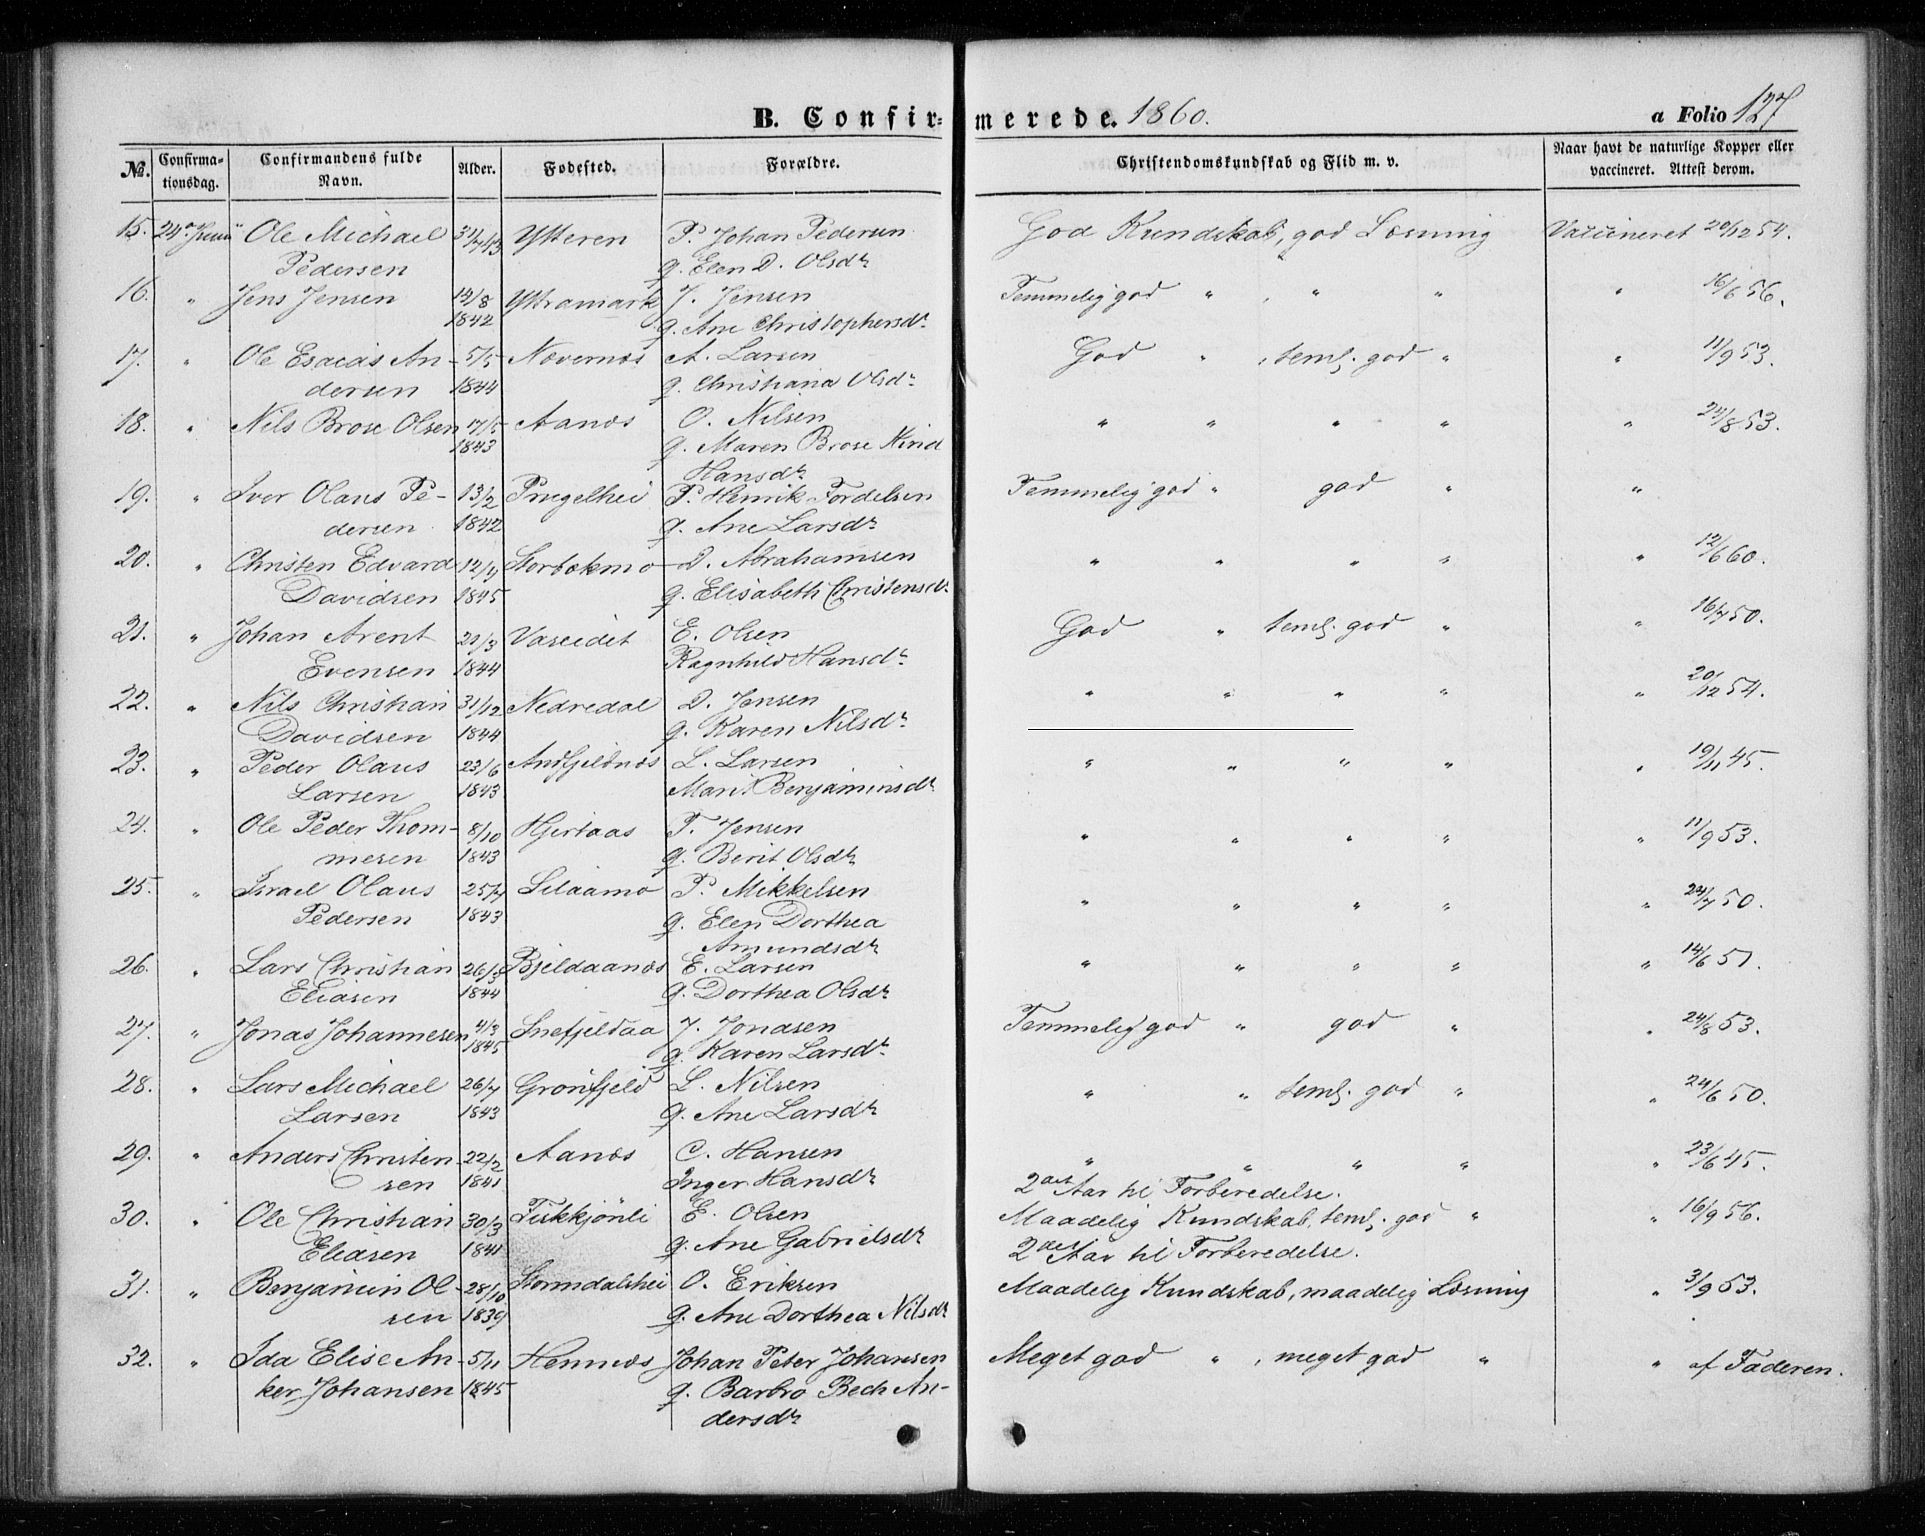 B. Confirmerede. 1860. a Folio 127
No. Confirmationsdag. Confirmandens fulde Navn. Alder. Fødested. Forældre. Christendomskundskab og Flid m. v. Naar havt de naturlige Kopper eller vaccineret. Attest derom.
15. 24de Juni Ole Michael 31/7 43 Ytteren P. Johan Pedersen God Kundskab, god Læsning Vaccineret 20/12 54.
Pedersen g. Elen D. Olsdr
16. " Jens Jensen 12/8 Yttramark J. Jensen Temmelig god " , " " " 16/6 56.
1842 g. Ane Christophersdr
17. " Ole Esaias An- 5/5 Nævernæs A. Larsen God " , teml. god " " 11/9 53.
dersen 1844 g. Christiana Olsdr
18. " Nils Brose Olsen 17/5 Aanæs O. Nilsen " " " " " 24/8 53.
1843 g. Maren Brose
Hansdr
19. " Iver Olaus Pe- 13/2 P. Henrik Tordelsen Temmelig god " god " "
dersen 1842 g. Ane Larsdr
20. " Christen Edvard 12/4 Storbækmo D. Abrahamsen " " " " " 12/6 60.
Davidsen 1845 g. Elisabeth Christensdr
21. " Johan Arent 21/3 Vaseidet E. Olsen God " teml. god " " 16/7 50.
Evensen 1844 Ragnhild Hansdr
22. " Nils Christian 31/12 Nedredal D. Jensen " " " " " 20/12 54.
Davidsen 1844 g. Karen Nilsdr
23. " Peder Olaus 23/6 Andfjeldnæs L. Larsen " " " " " 19/11 45.
Larsen 1843 Marit Benjaminsdr
24. " Ole Peder Thom- 8/10 Hjertaas T. Jensen " " " " " 11/9 53.
mesen 1843 g. Berit Olsdr
25. " Israel Olaus 25/7 Lilaamo P. Mikkelsen " " " " " 24/7 50.
Pedersen 1843 g. Elen Dorthea
Amundsdr
26. " Lars Christian 26/3 Bjeldaanæs E. Larsen " " " " " 14/6 51.
Eliasen 1844 g. Dorthea Olsdr
27. " Jonas Johannesen 4/3 Snefjeldaa J. Jonasen Temmelig god " god " " 24/8 53.
1845 g. Karen Larsdr
28. " Lars Michael 26/7 Grønfjeld L. Nilsen " " teml. god " " 24/6 50.
Larsen 1843 g. Ane Larsdr
29. " Anders Christen- 22/2 Aanæs C. Hansen " " " " " 23/6 45.
sen 1841 Inger Hansdr 2det Aar til Forberedelse.
30. " Ole Christian 30/3 Fiskkjønli E. Olsen Maadelig Kundskab, teml. god " " 16/9 56.
Eliasen 1841 g. Ane Gabrielsdr 2det Aar til Forberedelse.
31. " Benjamin Ol- 28/10 Stormdalshei O. Eriksen Maadelig Kundskab, maadelig Læsning " 3/9 53.
sen 1839 g. Ane Dorthea Nilsdr
32. " Ida Elise An- 5/11 Hemnæs Johan Peter Johansen Meget god " , meget god " " af Faderen.
ker Johansen 1845 g. Barbro Bech An-
dersdr